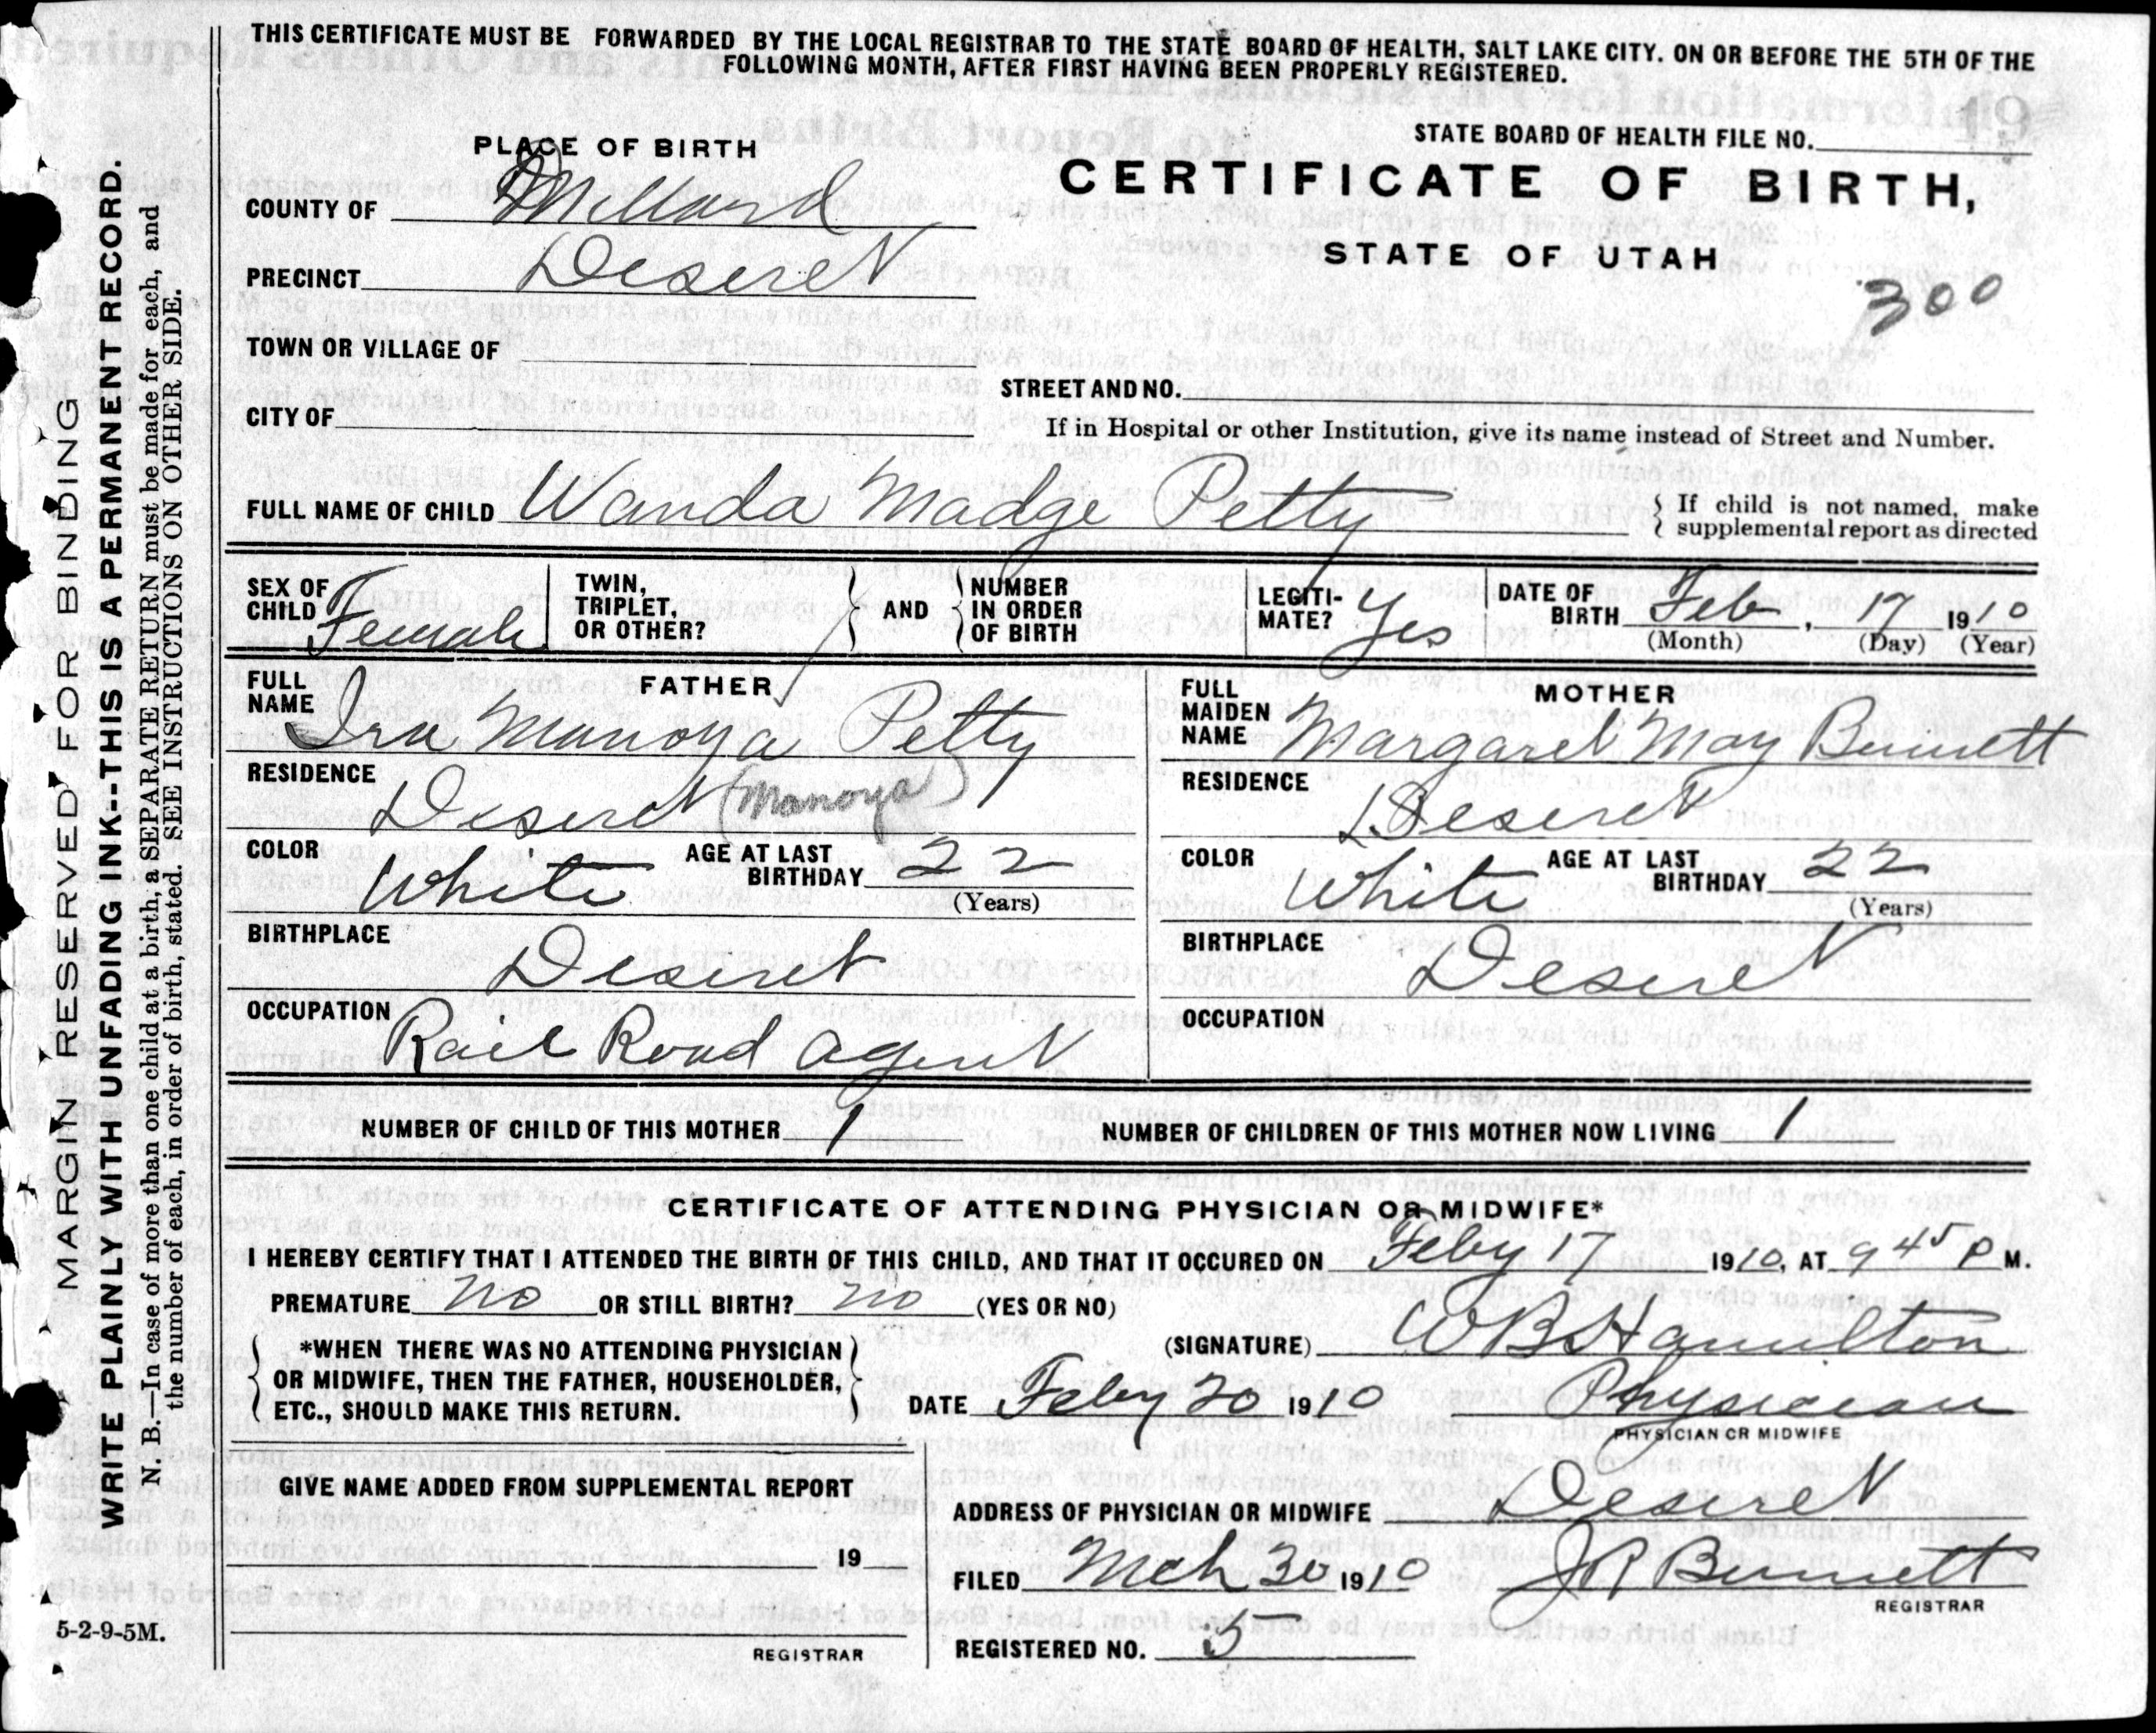 THIS CERTIFICATE MUST BE FORWARDED BY THE LOCAL REGISTRAR TO THE STATE BOARD OF HEALTH, SALT LAKE CITY. ON OR BEFORE THE 5TH OF THE
FOLLOWING MONTH, AFTER FIRST HAVING BEEN PROPERLY REGISTERED.
PLACE OF BIRTH
STATE BOARD OF HEALTH FILE NO.
CERTIFICATE OF BIRTH,
STATE OF UTAH
300
COUNTY OF Millard
PRECINCT Deseret
TOWN OR VILLAGE OF
STREET AND NO.
CITY OF
If in Hospital or other Institution, give its name instead of Street and Number.
FULL NAME OF CHILD Wanda Madge Petty
If child is not named, make
supplemental report as directed
SEX OF CHILD Female
TWIN, TRIPLET, OR OTHER?
AND
NUMBER IN ORDER OF BIRTH
LEGITI-MATE? Yes
DATE OF BIRTH Feb, 17 1910
(Month) (Day) (Year)
FATHER
FULL NAME Ira Manoya Petty
RESIDENCE Deseret (Manoya)
COLOR White AGE AT LAST BIRTHDAY 22
(Years)
BIRTHPLACE Deseret
OCCUPATION Rail Road Agent
MOTHER
FULL MAIDEN NAME Margaret May Bennett
RESIDENCE Deseret
COLOR White AGE AT LAST BIRTHDAY 22
(Years)
BIRTHPLACE Deseret
OCCUPATION
NUMBER OF CHILD OF THIS MOTHER 1 NUMBER OF CHILDREN OF THIS MOTHER NOW LIVING 1
CERTIFICATE OF ATTENDING PHYSICIAN OR MIDWIFE*
I HEREBY CERTIFY THAT I ATTENDED THE BIRTH OF THIS CHILD, AND THAT IT OCCURED ON Feby 17 1910, AT 9 45 P M.
PREMATURE no OR STILL BIRTH? no (YES OR NO)
*WHEN THERE WAS NO ATTENDING PHYSICIAN
OR MIDWIFE, THEN THE FATHER, HOUSEHOLDER,
ETC., SHOULD MAKE THIS RETURN.
(SIGNATURE) W B Hamilton
DATE Feby 20 1910 Physician
PHYSICIAN OR MIDWIFE
GIVE NAME ADDED FROM SUPPLEMENTAL REPORT
19
REGISTRAR
ADDRESS OF PHYSICIAN OR MIDWIFE Deseret
FILED Mch 30 1910 J R Bennett
REGISTRAR
REGISTERED NO. 5
MARGIN RESERVED FOR BINDING
WRITE PLAINLY WITH UNFADING INK--THIS IS A PERMANENT RECORD.
N. B.—In case of more than one child at a birth, a SEPARATE RETURN must be made for each, and
the number of each, in order of birth, stated. SEE INSTRUCTIONS ON OTHER SIDE.
5-2-9-5M.